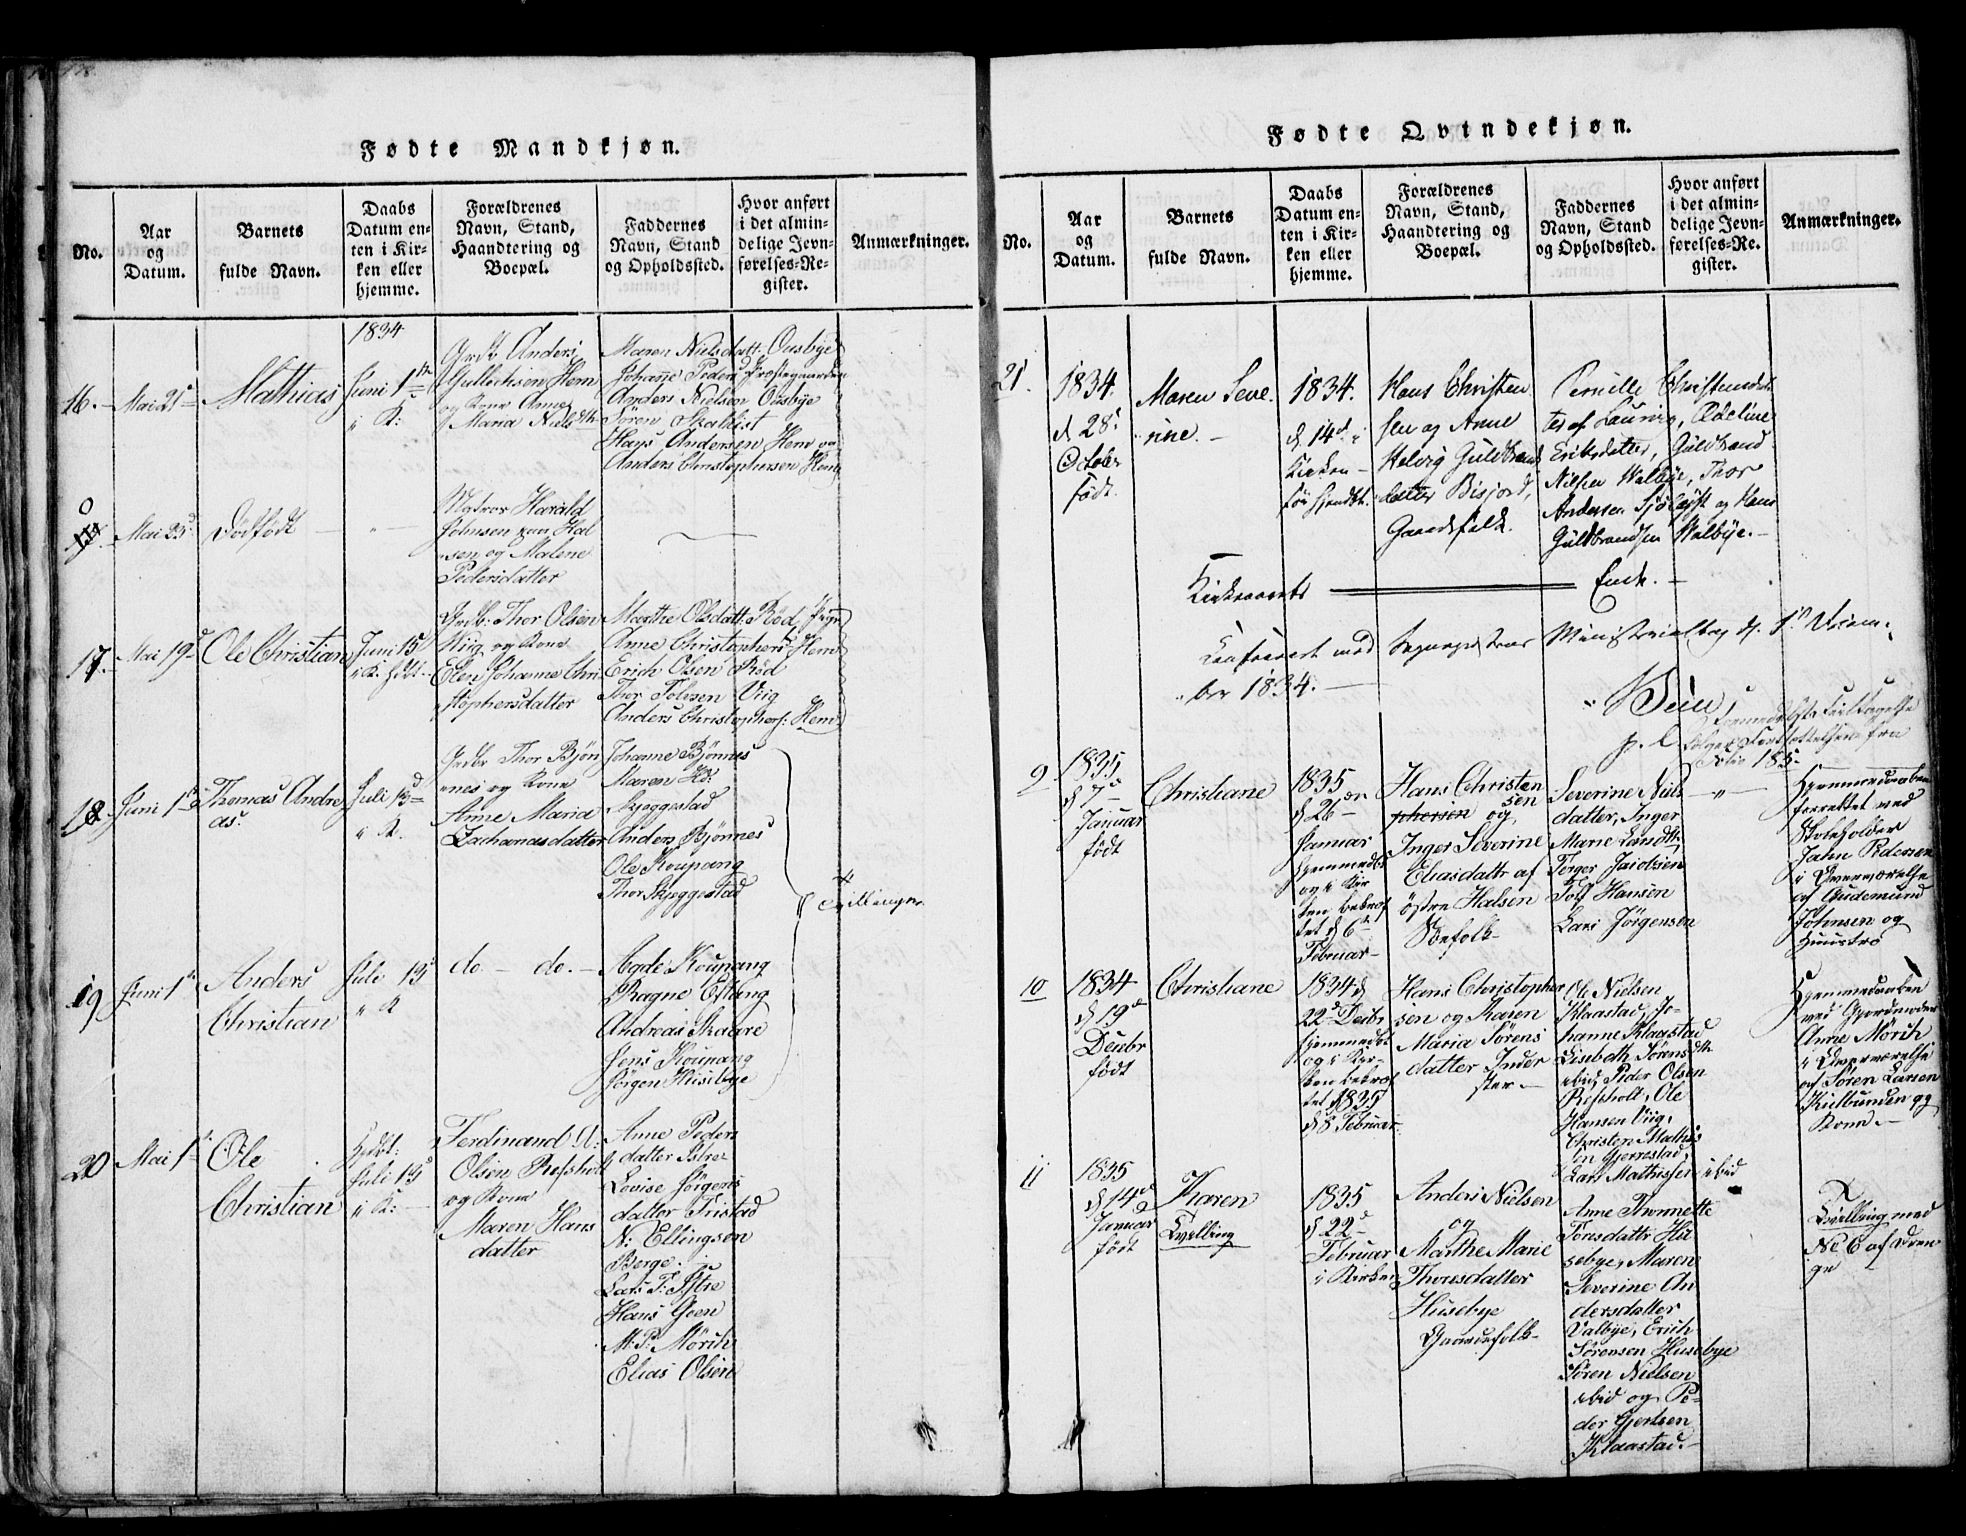 Fødte Mandkjøn.
No.
Aar
og
Datum.
Barnets
fulde Navn.
Daabs
Datum en-
ten i Kir-
ken eller
hjemme.
Forældrenes
Navn, Stand,
Haandtering og
Boepæl.
Faddernes
Navn, Stand
og Opholdssted.
Hvor anført
i det almin-
delige Jevn-
førelses-Re-
gister.
Anmærkninger.
16.
Mai 21
Mathias
1834
Juni 1
i K:
Anders
Gullichsen Hem
og Kone Anne
Maria Niels
Maren Nielsdatt. Ousbye
Johanne Peders Præstegaarden
Anders Nielsen Ousbye
Sören Skalist
Hans Andersen Hem og
Anders Christophersen Hem
0
Mai 25
Dödfödt
Harald
Johnsen paa Hal
sen og Malene
Pedersdatter
17.
Mai 19
Ole Christian
Juni 15
i K.
Thor Olsen
Wiig og Kone
Elen Johanne Chri
stophersdatter
Marthe Olsdatt. Röd
Anne Christophers Hem
Erich Olsen Röd
Thor Tolvsen Viig
Anders Christophers: Hem
18
Juni 1
Thomas Andre
as.
Juli 13
i K.
Thor Bjön
nes og Kone
Anne Maria
Zachariasdatter
Johanne Bjönnes
Maren
Skjeggestad
Anders Bjönnes
Ole Koupang
Thor Skjeggestad
Tvillinger
19
Juni 1
Anders
Christian
Juli 13
i K
do — do. —
Agde Koupang
Ragne Efting
Andreas Skaare
Jens Koupang
Jörgen Huseby
20
Mai 1
Ole
Christian
Juli 13
i K:
Ferdinand A:
Olsen Refsholt
og Kone
Maren Hans
datter
Anne Peders
datter Istre
Lovise Jörgens
datter Tristad
N: Ellingsen
Berge.
Lars T: Istre
Hans Goen
M: P: Mörch
Elias Olsen
Fødte Qvindekjøn.
No.
Aar
og
Datum.
Barnets
fulde Navn.
Daabs
Datum en-
ten i Kir-
ken eller
hjemme.
Forældrenes
Navn, Stand,
Haandtering og
Boepæl.
Faddernes
Navn, Stand
og Opholdssted.
Hvor anført
i det almin-
delige Jevn-
førelses-Re-
gister.
Anmærkninger.
21.
1834.
d 28
October
födt.
Maren Seve
rine.
1834.
d 14 i
Kirken
Hans Christen
sen og Anne
Helvig Guldbrands
datter Bisjord,
Gaardfolk.
Pernille Christensdat
ter af Laurvig, Edeline
Eriksdatter, Guldbrand
Nilsen Walbye, Thor
Andersen Sjöley st og Hans
Guldbrandsen Walbye.
Kirkeaarets ——— Ende.
Confereret med Sognepræstens Ministerialbog d. 1 Decem
ber 1834.
Bull
Formedelst Feiltagelse
følger Fortsættelsen fra
Folio 185
9
1835
d 7
Januar
födt
Christiane
1835
d 26
Januar
hjemmedöbt
og i Kir
ken bekræf
tet d 6
Februar
Hans Christen
phersen sen og
Inger Severine
Eliasdatter af
östre Halsen
Söefolk
Severine Niels
datter, Inger
Marie Larsdtr
Torger Jacobsen
Tolf Hanson
Lars Jörgensen
"
Hjemmedaaben
forrettet ved
Skoleholder
Jahn Pedersen
i Overværelse
af Gudemund
Johnsen og
Hustro
10
1834
d 19
Decbr
födt
Christiane
1834 d
22 Decbr
hjemmedöbt
og i Kir
ken bekræf
tet 1835
d 8 Februar
Hans Christopher
sen og Karen
Maria Sörens
datter Inder
ster
Ole Nielsen
Klaastad, Jo-
hanne Klaastad
Lisebeth Sörens dtr
ibid, Peder Olsen
Refsholt, Ole
Hansen Viig,
Christen Mathis
en Gjerrestad,
Lars Mathissen ibid
Hjemmedaaben
ved Gjordmoder
Anne Mörch
i Overværelse
af Sören Larsen
Kielbunden og
Kone.
11
1835
d 14
Januar
födt
Karen
Tvilling
1835
d 22
Februar
i Kirken
Anders Nielsen
og
Marthe Marie
Thoresdatter
Husebye
Gaardfolk
Anne Thonnette
Toresdattr Hu
sebye, Maren
Severine An
dersdatter
Valbye, Erich
Sörensen Husebye
Sören Nielsen
ibid og Pe-
der Gjertsen
Klaastad.
Tvilling med
No 6 af Dren
ge